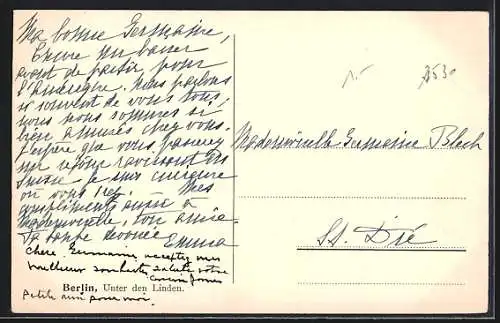 Ma bonne Germaine,
Encore un baiser
avant de partir pour
l'Auvergne. Nous parlons
si souvent de vous tous,
nous nous sommes si
bien amusés chez vous.
J'espère que vous
Suisse, je suis
où vous Mes
compliments aussi à
Mademoiselle, ton amie.
Ta bonne dévouée
Emma
Chère Germaine, acceptez mes
meilleurs souhaits, salute votre
cousin
petite amie pour moi.
Berlin, Unter den Linden.
15
3530
Mademoiselle Germaine Bloch
St. Dié